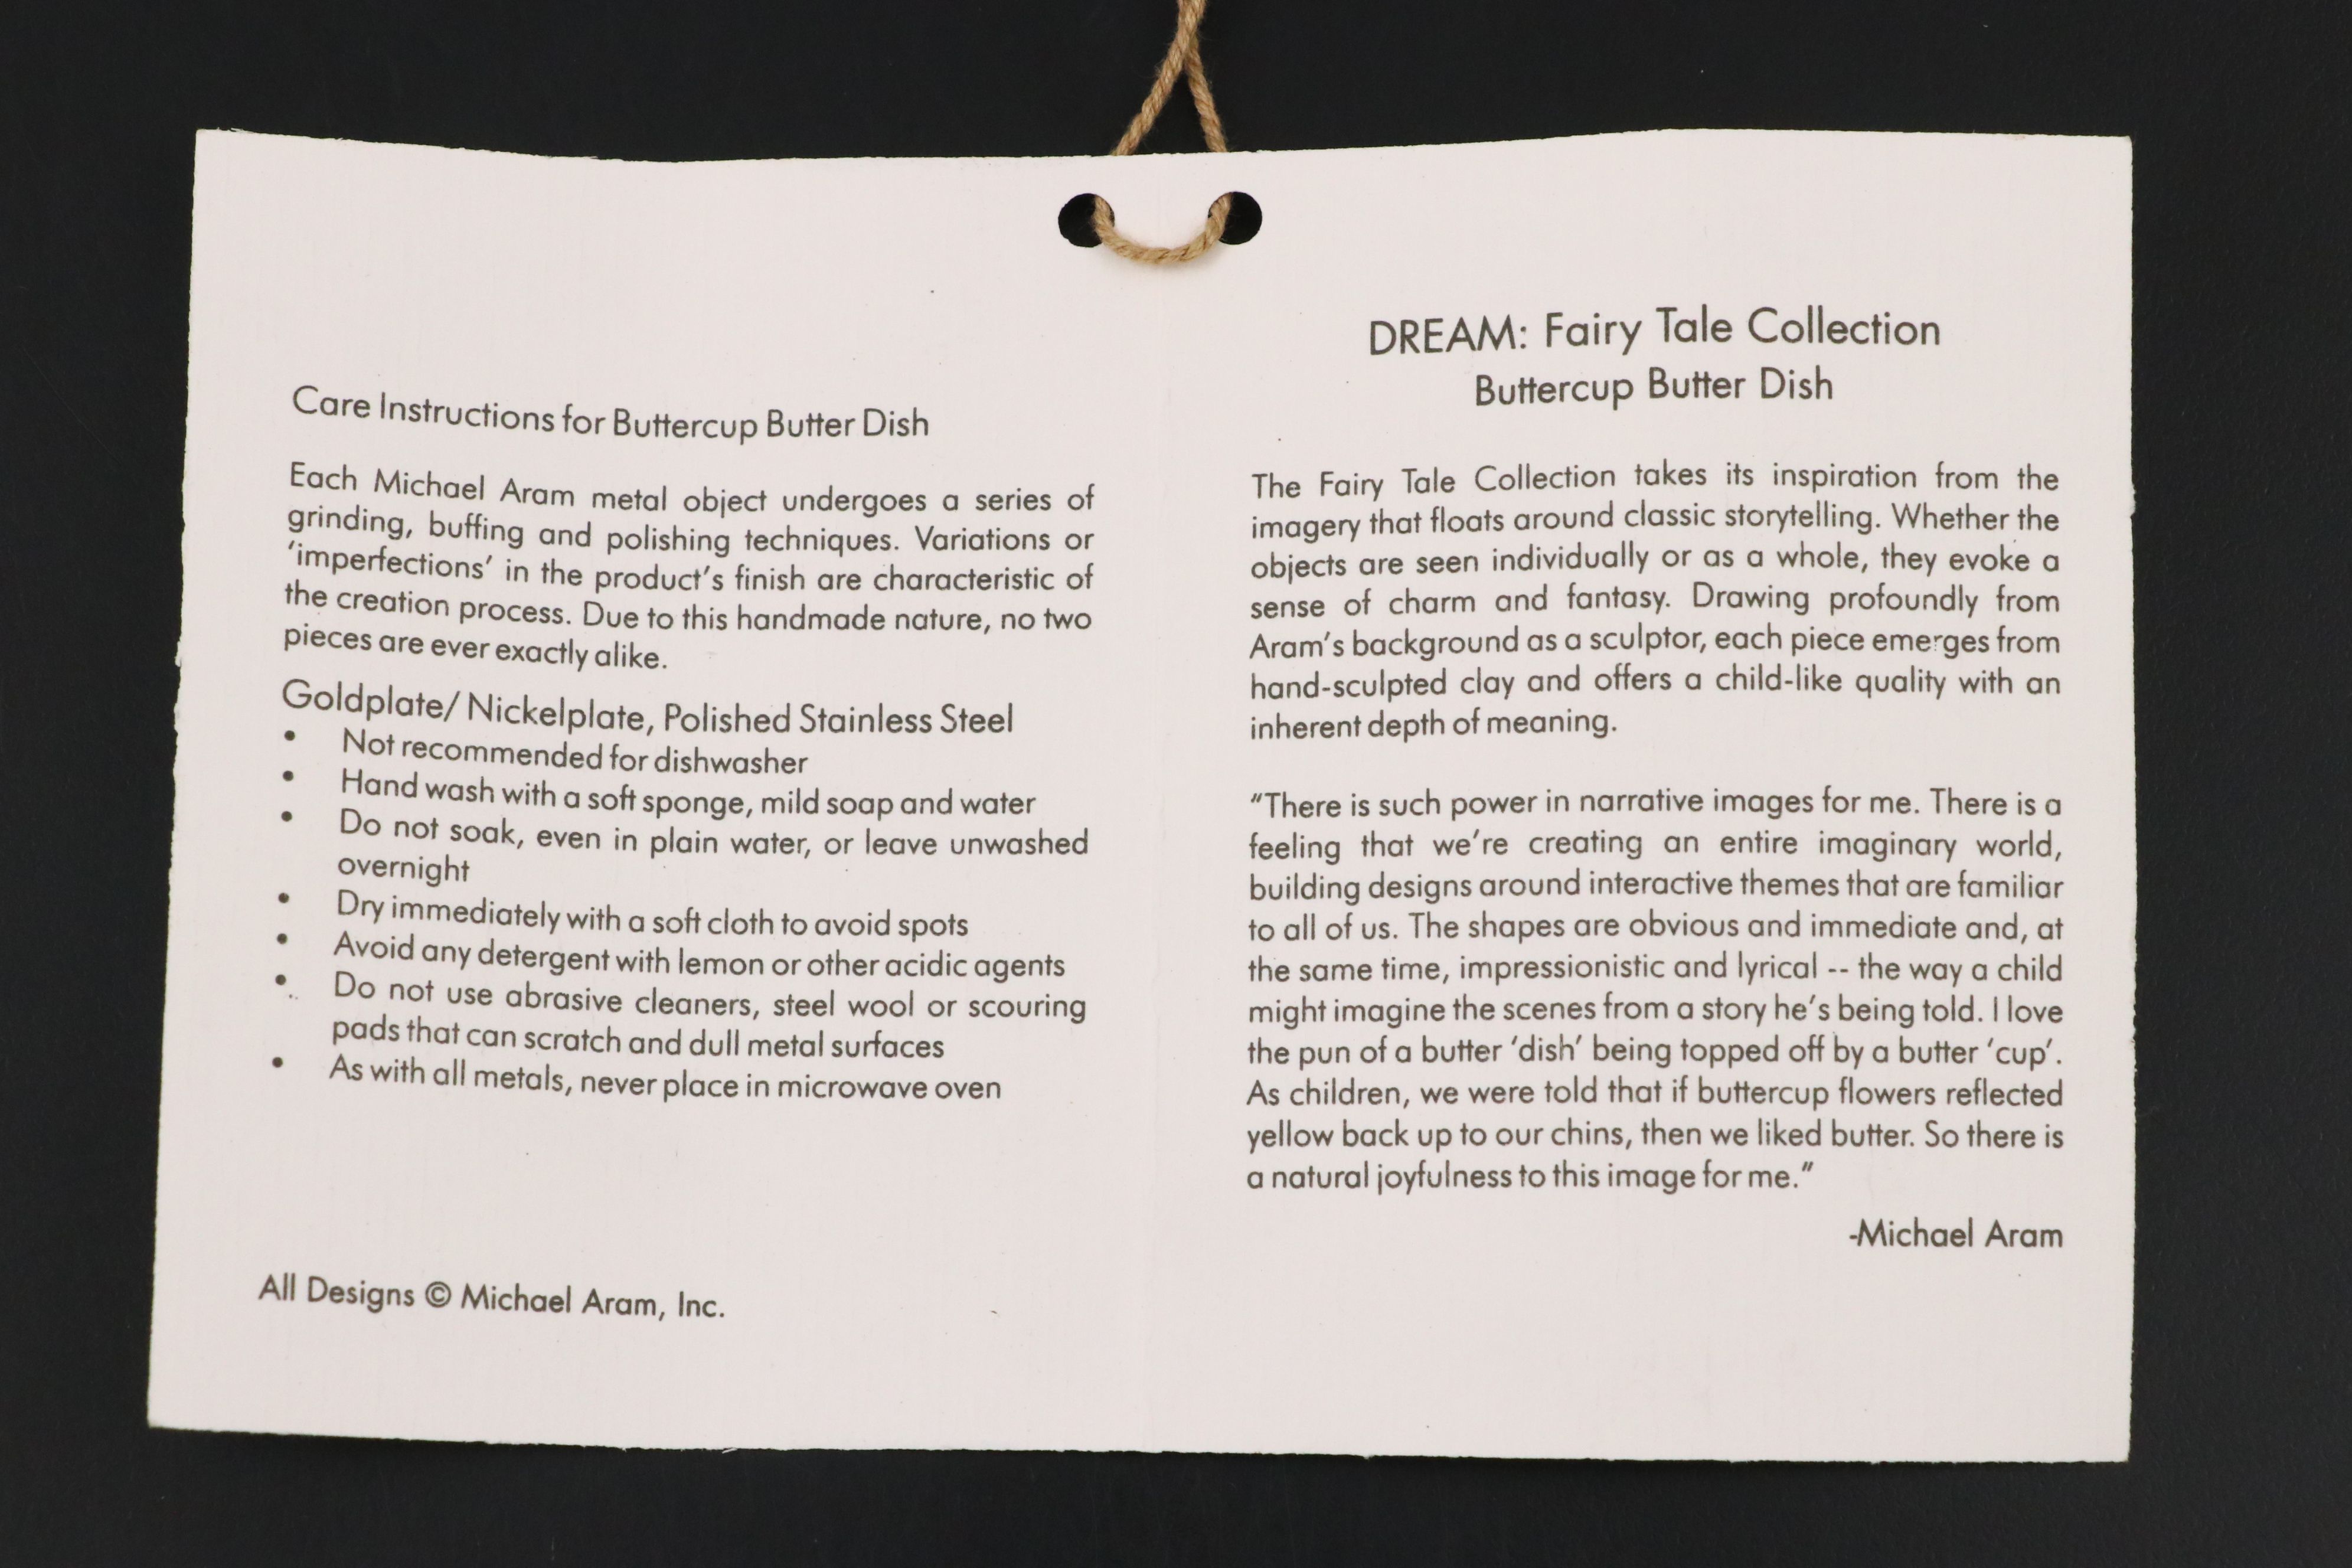 Care Instructions for Buttercup Butter Dish
Each Michael Aram metal object undergoes a series of
grinding, buffing and polishing techniques. Variations or
‘imperfections’ in the product’s finish are characteristic of
the creation process. Due to this handmade nature, no two
pieces are ever exactly alike.
Goldplate/ Nickelplate, Polished Stainless Steel
• Not recommended for dishwasher
• Hand wash with a soft sponge, mild soap and water
• Do not soak, even in plain water, or leave unwashed
overnight
• Dry immediately with a soft cloth to avoid spots
• Avoid any detergent with lemon or other acidic agents
• Do not use abrasive cleaners, steel wool or scouring
pads that can scratch and dull metal surfaces
• As with all metals, never place in microwave oven
All Designs © Michael Aram, Inc.
DREAM: Fairy Tale Collection
Buttercup Butter Dish
The Fairy Tale Collection takes its inspiration from the
imagery that floats around classic storytelling. Whether the
objects are seen individually or as a whole, they evoke a
sense of charm and fantasy. Drawing profoundly from
Aram’s background as a sculptor, each piece emerges from
hand-sculpted clay and offers a child-like quality with an
inherent depth of meaning.
“There is such power in narrative images for me. There is a
feeling that we’re creating an entire imaginary world,
building designs around interactive themes that are familiar
to all of us. The shapes are obvious and immediate and, at
the same time, impressionistic and lyrical -- the way a child
might imagine the scenes from a story he’s being told. I love
the pun of a butter ‘dish’ being topped off by a butter ‘cup’.
As children, we were told that if buttercup flowers reflected
yellow back up to our chins, then we liked butter. So there is
a natural joyfulness to this image for me.”
-Michael Aram